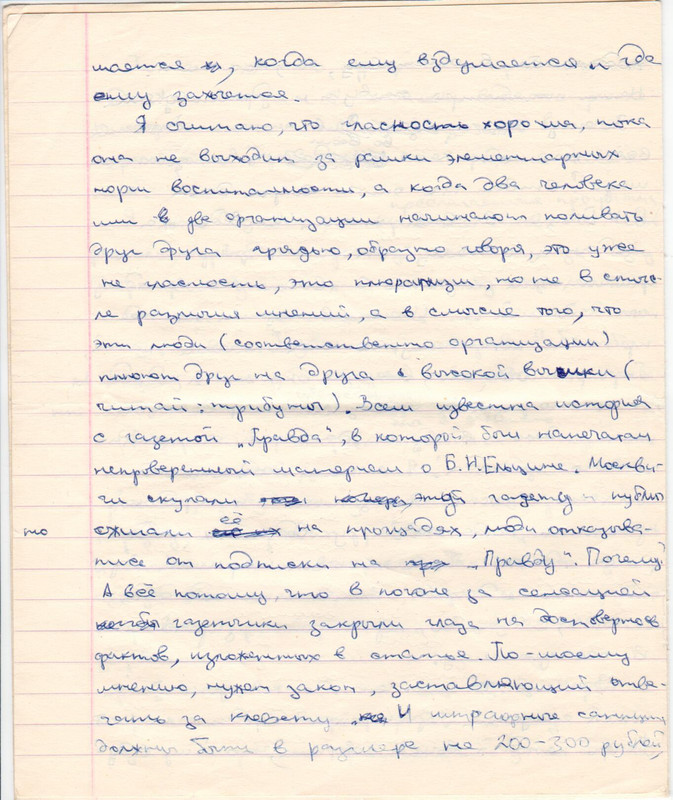 шается, когда ему вздумается и где
ему захочется.
Я считаю, что гласность хороша, пока
она не выходит за рамки элементарных
норм воспитанности, а когда два человека
или две организации начинают поливать
друг друга грязью, образно говоря, это уже
не гласность, это плюрализм, но не в смыс-
ле различия мнений, а в смысле того, что
эти люди (соответственно организации)
плюют друг на друга с высокой вышки (
читай: трибуны). Всем известна история
с газетой „Правда", в которой был напечатан
непроверенный материал о Б.Н.Ельцине. Москви-
чи скупали эту газету и публич
но сжигали её на площадях, люди отказыва-
лись от подписки на „Правду". Почему?
А всё потому, что в погоне за сенсацией
газетчики закрыли глаза на достоверность
фактов, изложенных в статье. По-моему
мнению, нужен закон, заставляющий отве-
чать за клевету. И штрафные санкции
должны быть в размере не 200-300 рублей,